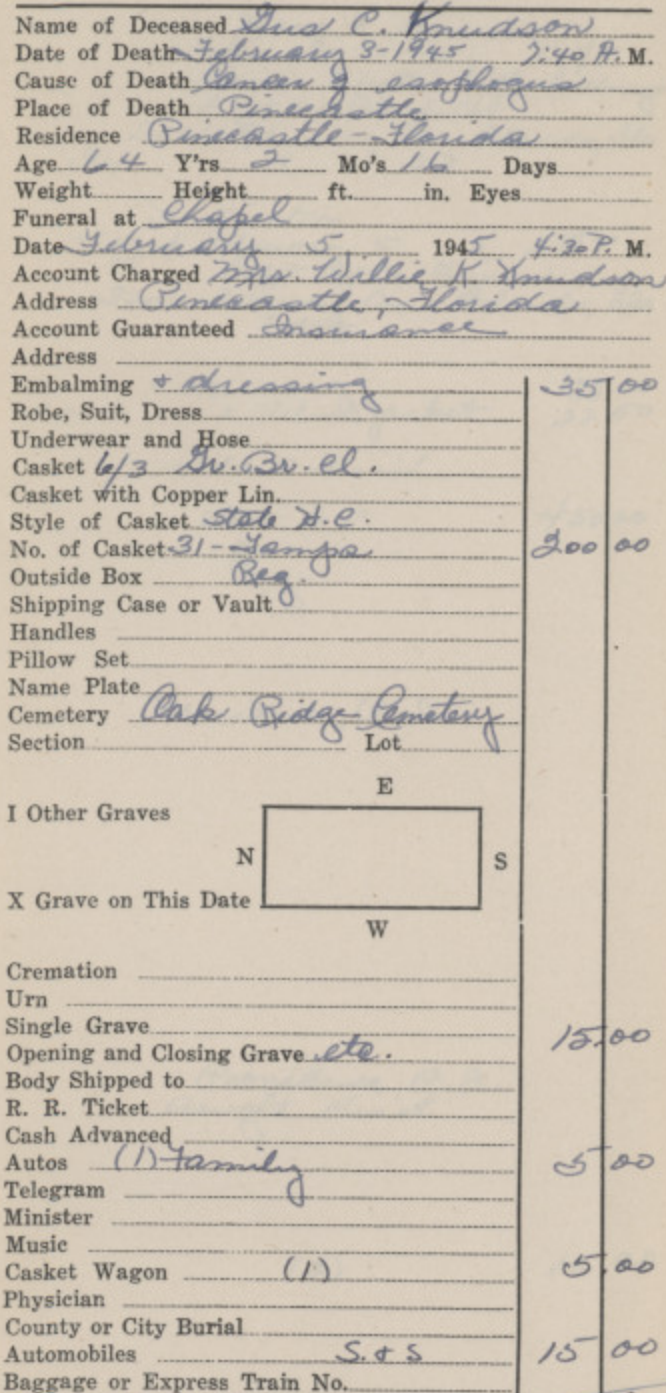 Name of Deceased Gus C. Knudson
Date of Death February 3-1945 7:40 A. M.
Cause of Death Cancer of esophogus
Place of Death Pinecastle
Residence Pinecastle - Florida
Age 64 Y'rs 2 Mo's 16 Days
Weight Height ft. in. Eyes
Funeral at Chapel
Date February 5 1945 4:30 P. M.
Account Charged Mrs. Willie K Knudson
Address Pinecastle, Florida
Account Guaranteed Insurance
Address
Embalming + dressing 35 00
Robe, Suit, Dress
Underwear and Hose
Casket 6/3 Gr. Br. cl.
Casket with Copper Lin.
Style of Casket State H.C.
No. of Casket 31 - Tampa 200 00
Outside Box Reg.
Shipping Case or Vault
Handles
Pillow Set
Name Plate
Cemetery Oak Ridge Cemetery
Section Lot
E
I Other Graves
N S
X Grave on This Date
W
Cremation
Urn
Single Grave
Opening and Closing Grave etc. 15.00
Body Shipped to
R. R. Ticket
Cash Advanced
Autos (1) Family 5 00
Telegram
Minister
Music
Casket Wagon (1) 5.00
Physician
County or City Burial
Automobiles S. & S 15 00
Baggage or Express Train No.